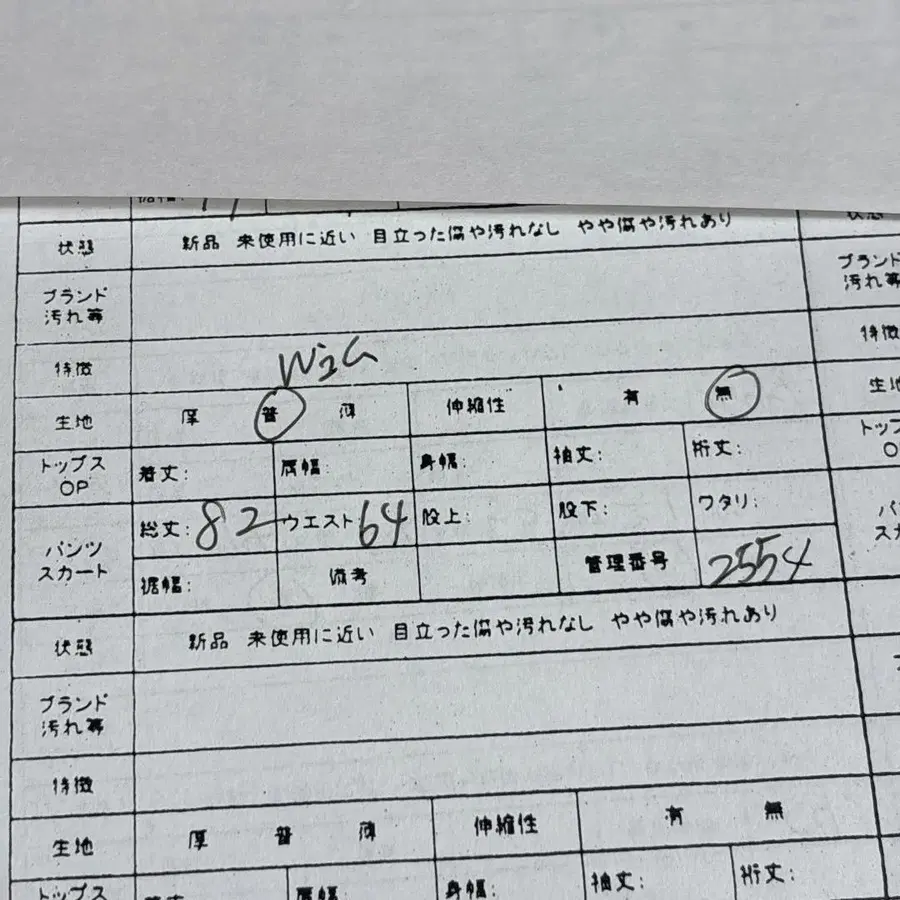 状態 新品 未使用に近い 目立った傷や汚れなし やや傷や汚れあり
ブランド
汚れ等
特徴
生地 厚 普 薄 伸縮性 有 無
トップス
OP
着丈: 肩幅: 身幅: 袖丈: 裄丈:
パンツ
スカート
総丈: 82 ウエスト 64 股上: 股下: ワタリ:
裾幅: 備考 管理番号 2554
状態 新品 未使用に近い 目立った傷や汚れなし やや傷や汚れあり
ブランド
汚れ等
特徴
生地 厚 普 薄 伸縮性 有 無
トップス 肩幅: 身幅: 袖丈: 裄丈:
状態
ブランド
汚れ等
特徴
生地